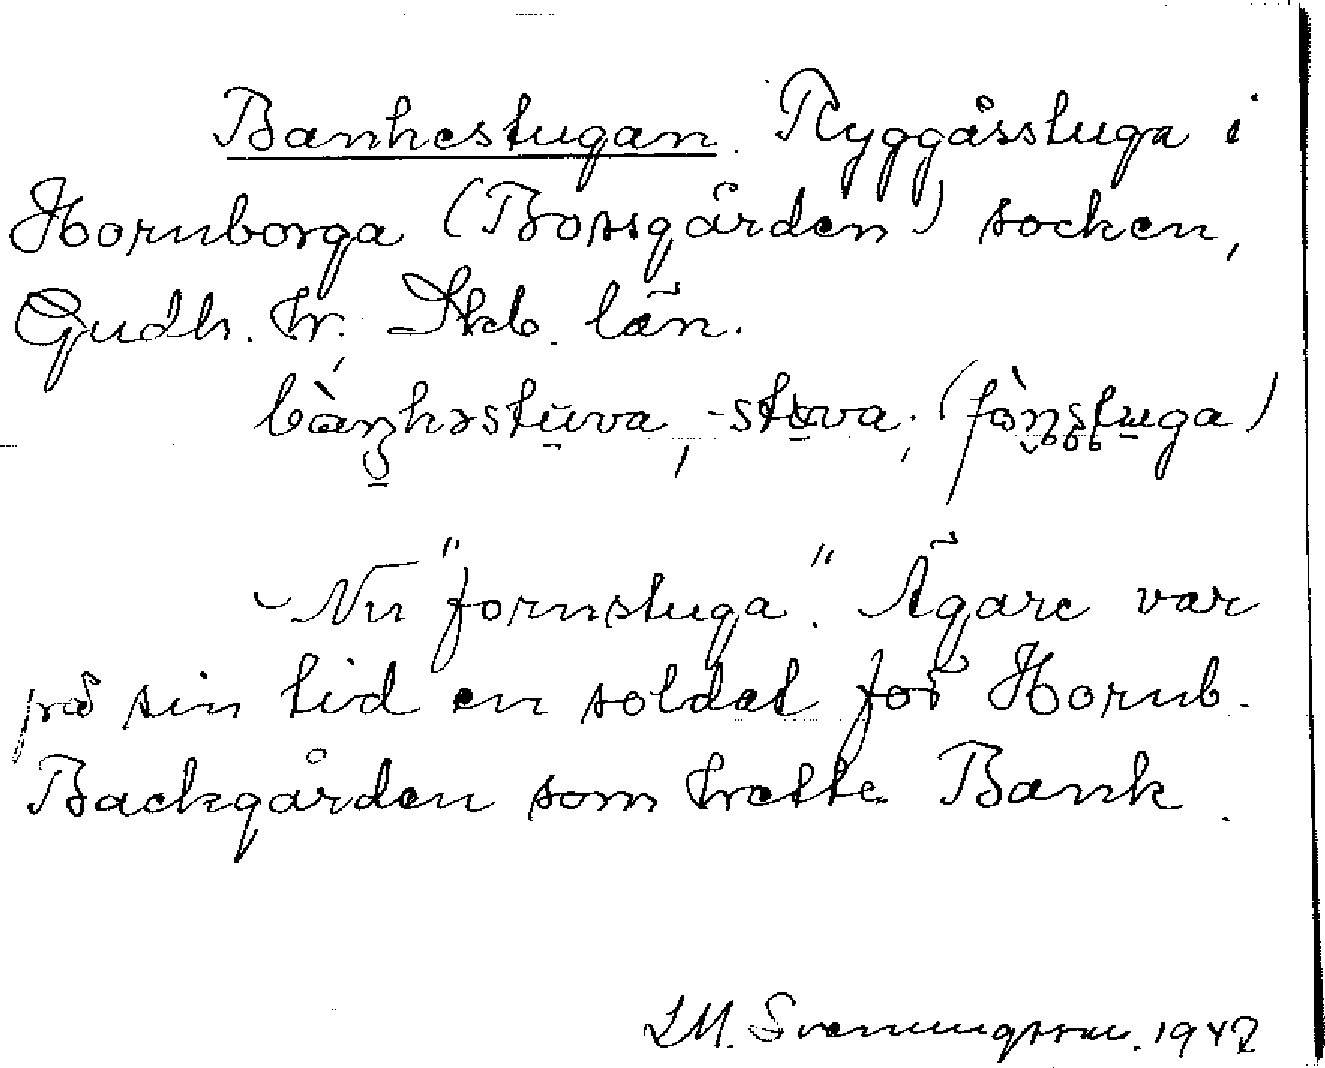 Bankestugan. Ryggåsstuga i
Hornborga (Bossgården) socken,
Gudh. hr, Skb. län.
bàŋkəstuva, -stuva; (fòn̥stuga)
- Nu "fornstuga". Ägare var
på sin tid en soldat för Hornb.
Backgården som hette Bank.
L.M. Svenungsson. 1942